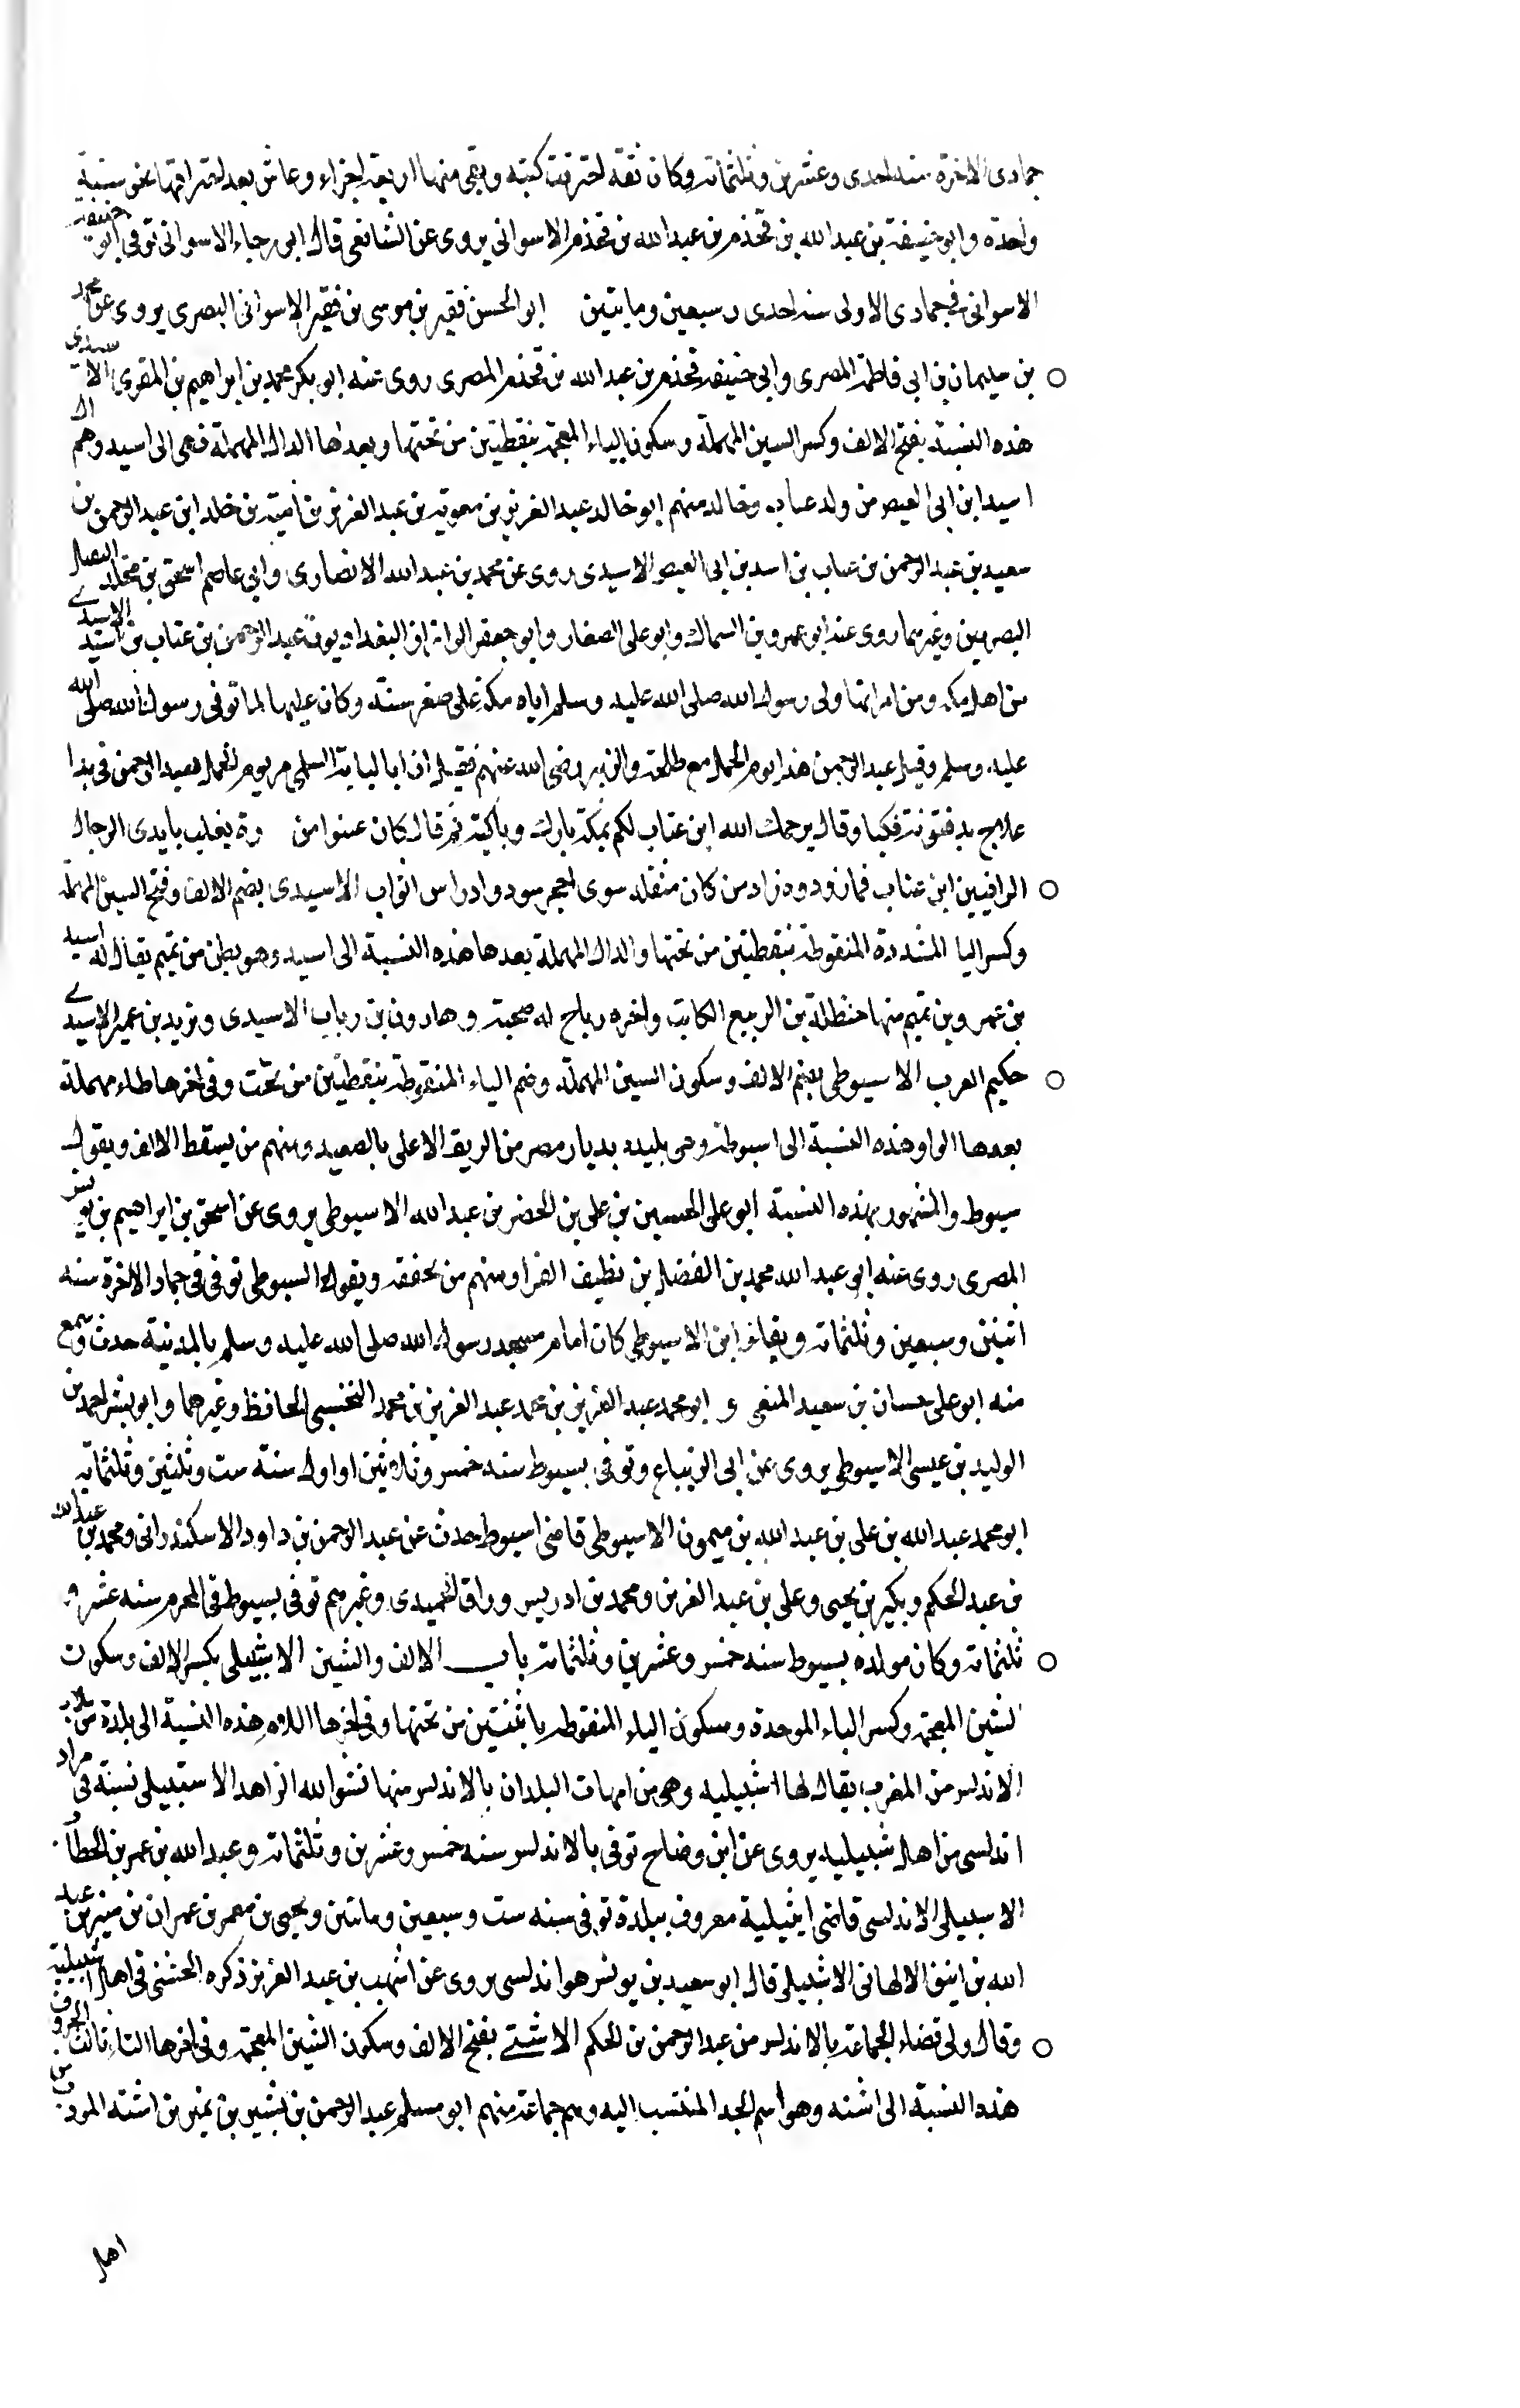 جمادى الاخرة سنه احدى وعشرين وثلثماته وكان ثقة احترقت كتبه وبقى منها اربعة اجزاء وعاش بعد احتراقها نحو سنة
واحدة وابو حنيفة بن عبد الله بن قحذم بن عبد الله بن قحذم الاسوانى يروى عن الشافعى قال ابو رجاء الاسوانى توفى ابو حنيفه
الاسوانى فى جمادى الاولى سنه احدى وسبعين ومايتين ابو الحسن فقير بن موسى بن فقير الاسوانى البصرى يروى عن محمد
بن سليمان بن ابى فاطمة المصرى وابى حنيفه قحذم بن عبد الله بن قحذم المصرى روى عنه ابو بكر محمد بن ابراهيم بن المقرى الاسيدى
هذه النسبة بفتح الالف وكسر السين المهملة وسكون الياء المعجمة بنقطتين من تحتها وبعدها الدال المهملة فهى الى اسيد وهم ال
اسيد ابن ابى العيص من ولد عتاب وخالد منهم ابو خالد عبد العزيز بن معوية بن عبد العزيز بن امية بن خلد ابن عبد الرحمن بن
سعيد بن عبد الرحمن بن عتاب بن اسد بن ابى العيص الاسيدى روى عن محمد بن عبد الله الانصارى وابى عاصم اسحق بن مخلد
البصريين وغيرهما روى عنه ابو عمرو بن السماك وابو على الصفار وابو جعفر الرزاز البغداديون عبد الرحمن بن عتاب بن اسيد الاسيدى
من اهل مكه ومن امرائها ولى رسول الله صلى الله عليه وسلم اياه مكة على صغر سنه وكان عليها لما توفى رسول الله صلى الله
عليه وسلم وقيل عبد الرحمن هذا يوم الجمل مع طلحة والزبير رضى الله عنهم فقيل ان ابا لبابة السلمى مر يوم الجمل بعبد الرحمن فى بدا
علاج به فبكا وقال يرحمك الله ابن عتاب لكم بمكة بارك وباكية ثم قال كان عينوا من يغلب بايدى الرجال
الرافيين ابن عتاب فما زودوه زاد من كان منقلد سوى احجر سود وادراس اثواب الاسيدى بضم الالف وفتح السين المهملة
وكسر اليا المشددة المنقوطة بنقطتين من تحتها والدال المهملة بعدها هذه النسبة الى اسيد وهو بطن من تميم يقال له اسيد
بن عمرو بن تميم منها حنظلة بن الربيع الكاتب واخوه رباح له صحبة وهارون بن رياب الاسيدى ويزيد بن عمير الاسيدى
حكيم العرب الاسيوطى بضم الالف وسكون السين المهملة وضم الياء المنقوطة بنقطتين من تحت وفى اخرها طاء مهملة
بعدها الواو هذه النسبة الى اسيوطة وهى بليده بديار مصر من الريف الاعلى بالصعيد ومنهم من يسقط الالف ويقول
سيوط والمشهور بهذه النسبة ابو على الحسين بن على بن الخضر بن عبد الله الاسيوطى يروى عن اسحق بن ابراهيم بن يونس
المصرى روى عنه ابو عبد الله محمد بن الفضل بن نظيف الفرا ومنهم من يخففه ويقول السيوطى توفى فى جماد الاخرة سنه
اثنتين وسبعين وثلثماته ويقال ابن الاسيوطى كان امام مسجد رسول الله صلى الله عليه وسلم بالمدينة حدث وسمع
منه ابو على حسان بن سعيد المنعى و ابو محمد عبد العزيز بن محمد عبد العزيز بن محمد النخشبى الحافظ وغيرهما وابو بشر احمد بن
الوليد بن عيسى الاسيوطى يروى عن ابى الزنباع وتوفى بسيوط سنه خمس وثلاثين او اول سنة ست وثلثين وثلثماته
ابو محمد عبد الله بن على بن عبد الله بن ميمون الاسيوطى قاضى اسيوط حدث عن عبد الرحمن بن داود الاسكندرانى ومحمد بن عبد الله
بن عبد الحكم وبكير بن يحيى وعلى بن عبد العزيز ومحمد بن ادريس وراق الحميدى وغيرهم توفى بسيوط فى المحرم سنه عشر و
ثلثماته وكان مولده بسيوط سنه خمس وعشرين وثلثماته باب الالف والشين الاشبيلى بكسر الالف وسكون
الشين المعجمة وكسر الباء الموحدة وسكون الياء المنقوطه باثنتين من تحتها وفى اخرها اللام هذه النسبة الى بلدة من بلاد
الاندلس من المغرب يقال لها اشبيليه وهى من امهات البلدان بالاندلس منها الله الزاهد الاشبيلى نسبة فى مراد
اندلسى من اهل شبيلية يروى عن ابن وضاح توفى بالاندلس سنه خمس وعشرين وثلثماته وعبد الله بن عمر بن الخطاب
الاسبيلى الاندلسى قاضى اشبيلية معروف ببلدة توفى سنه ست وسبعين ومايتين ويحيى بن معمر بن عمران بن منير بن عبد
الله بن انيف الالهانى الاشبيلى قال ابو سعيد بن يونس هو اندلسى يروى عن اشهب بن عبد العزيز ذكره الخشنى فى اهل اشبيلية
وقال ولى قضاء الجماعة بالاندلس من عبد الرحمن بن الحكم الاشتى بفتح الالف وسكون الشين المعجمة وفى اخرها التاء ثالث الحروف
هذه النسبة الى اشته وهو اسم لجد المنتسب اليه وهم جماعة منهم ابو مسلم عبد الرحمن بن بشير بن نمير بن اشته المودب من
اهل